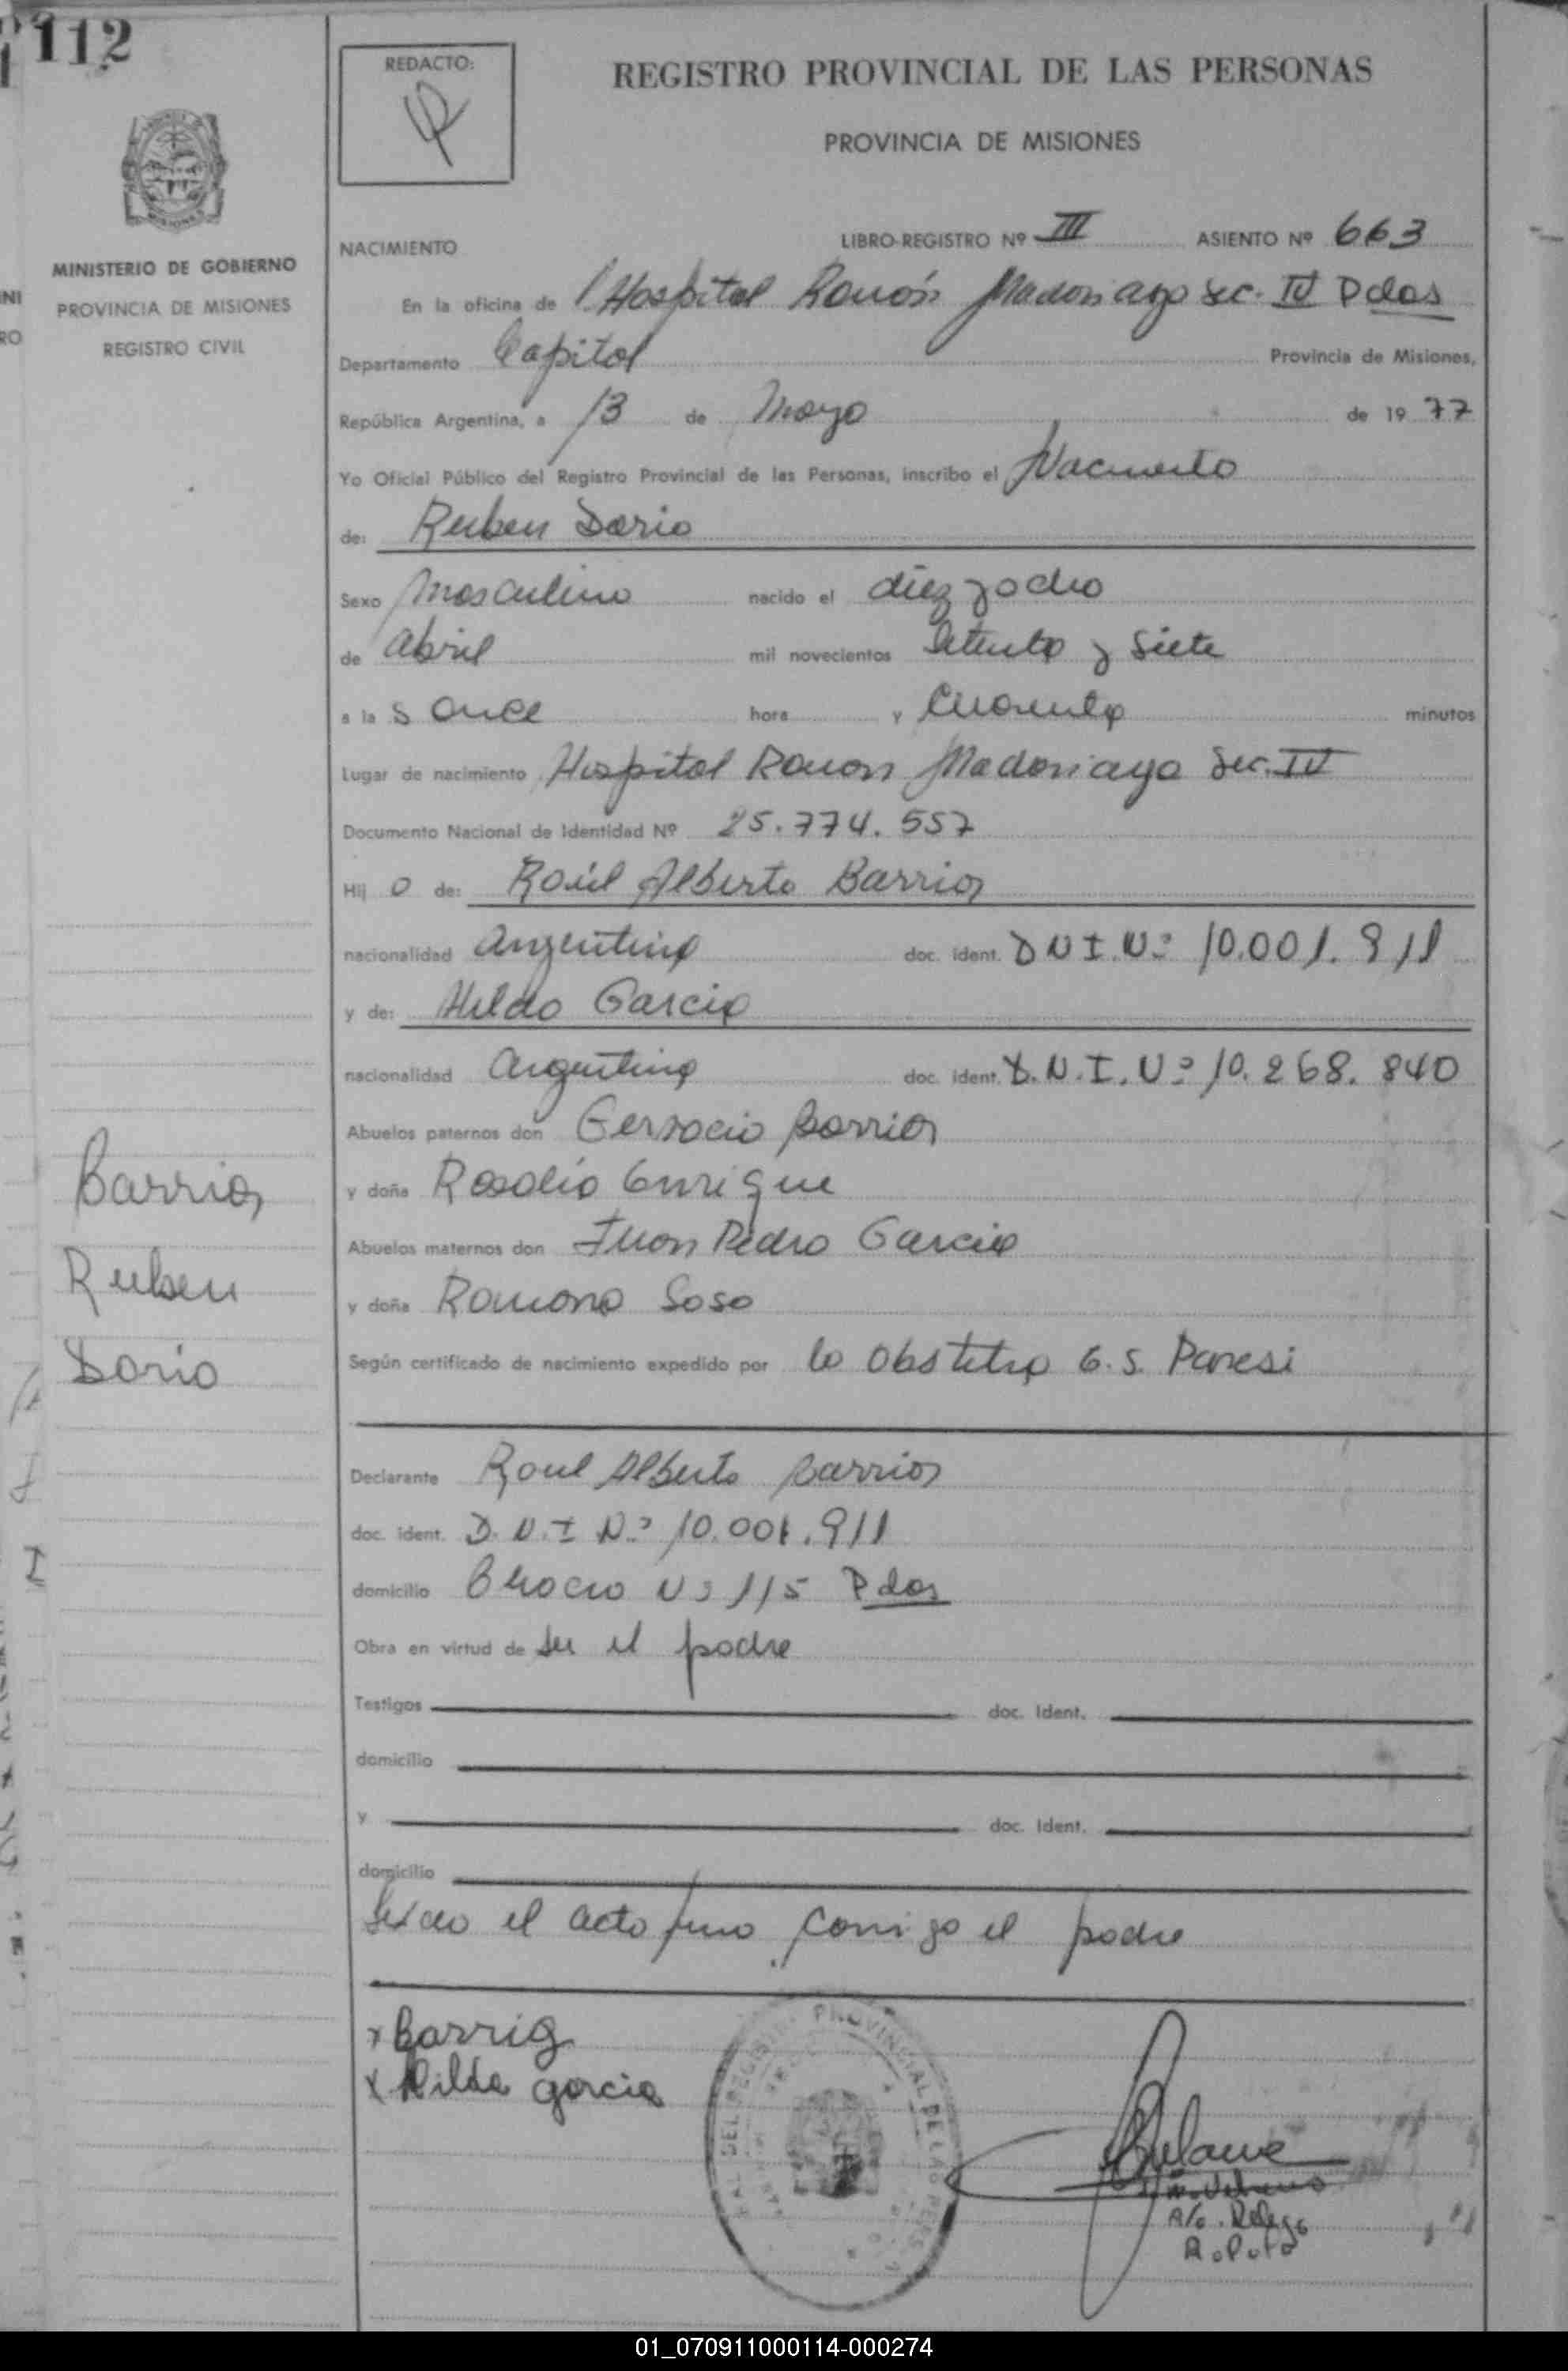 112
REDACTO:
REGISTRO PROVINCIAL DE LAS PERSONAS
PROVINCIA DE MISIONES
MINISTERIO DE GOBIERNO
PROVINCIA DE MISIONES
REGISTRO CIVIL
NACIMIENTO
LIBRO-REGISTRO Nº III ASIENTO Nº 663
En la oficina de Hospital Ramón Madariaga Sec. IV Pdas
Departamento Capital Provincia de Misiones,
República Argentina, a 13 de Mayo de 1977
Yo Oficial Público del Registro Provincial de las Personas, inscribo el Nacimiento
de: Ruben Dario
Sexo Masculino nacido el diez y ocho
de abril mil novecientos Setenta y Siete
a las Once hora y Cuarenta minutos
Lugar de nacimiento Hospital Ramon Madariaga Sec. IV
Documento Nacional de Identidad Nº 25.774.557
Hijo de: Raúl Alberto Barrios
nacionalidad Argentina doc. ident. D N I. Nº 10.001.911
y de: Hilda Garcia
nacionalidad Argentina doc. ident. D.N.I. Nº 10.268.840
Abuelos paternos don Gervacio Barrios
y doña Rosalia Enrique
Abuelos maternos don Juan Pedro Garcia
y doña Ramona Sosa
Según certificado de nacimiento expedido por la Obstetra G. S. Panesi
Barrios
Ruben
Dario
Declarante Raul Alberto Barrios
doc. ident. D.N.I Nº 10.001.911
domicilio Nº 115 Pdas
Obra en virtud de ser el padre
Testigos doc. Ident.
domicilio
y doc. Ident.
domicilio
Leido el acta firma conmigo el padre
x Barrios
x Hilda garcia
PROVINCIAL DE LAS
01_070911000114-000274